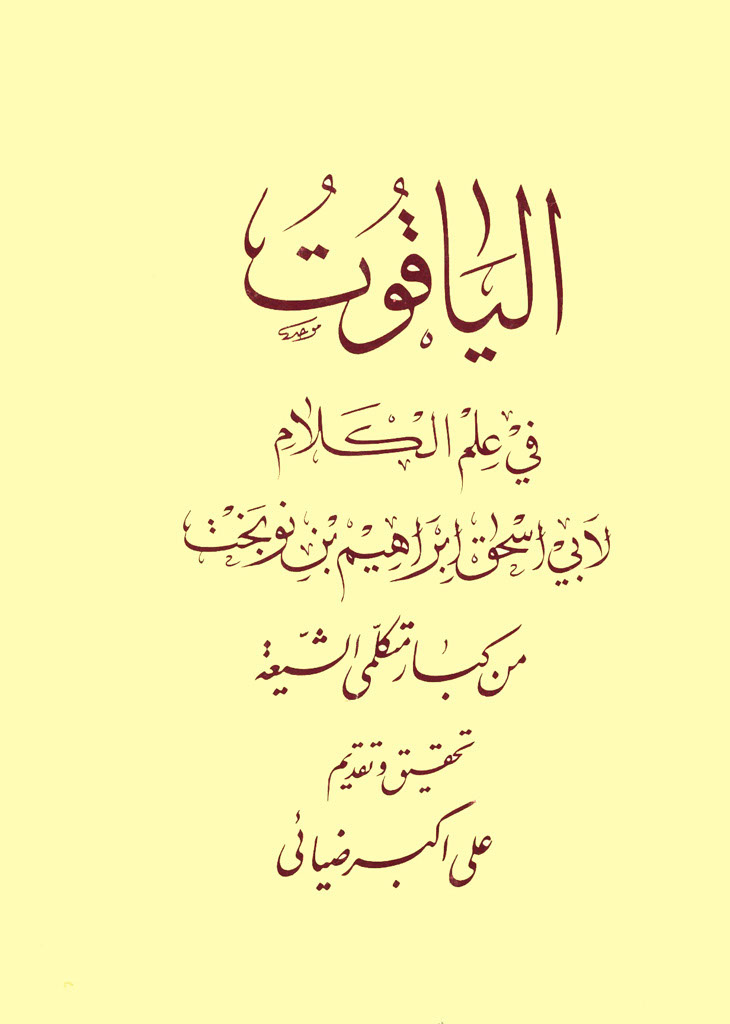 الياقُوتُ
موحدي
في عِلْمِ الكَلامِ
لاَبي اسْحاق اِبْرَاهِيْم بْنِ نَوبَخْت
من كبار متكلّمى الشّيعة
تحقيق و تقديم
على اكبر ضيائى